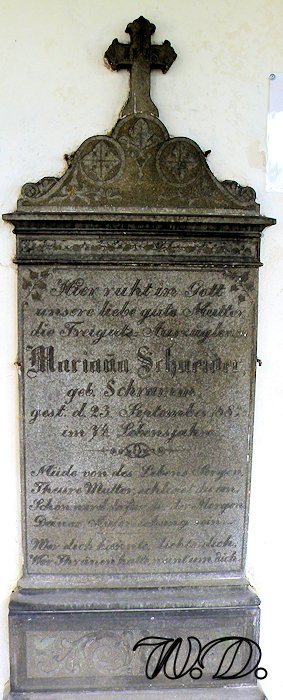 Hier ruht in Gott
unsere liebe gute Mutter
die Freiguts Auszüglerin
Mariana Schneider
geb. Schramm
gest. d. 23. September 188
im 74. Lebensjahre
Müde von des Lebens Sorgen,
Theure Mutter, schliefst du ein.
Schon wird dafür der Morgen
Deiner Auferstehung sein.
Wer dich kannte, liebte dich,
Wer Thränen hatte, weint um dich
W.D.